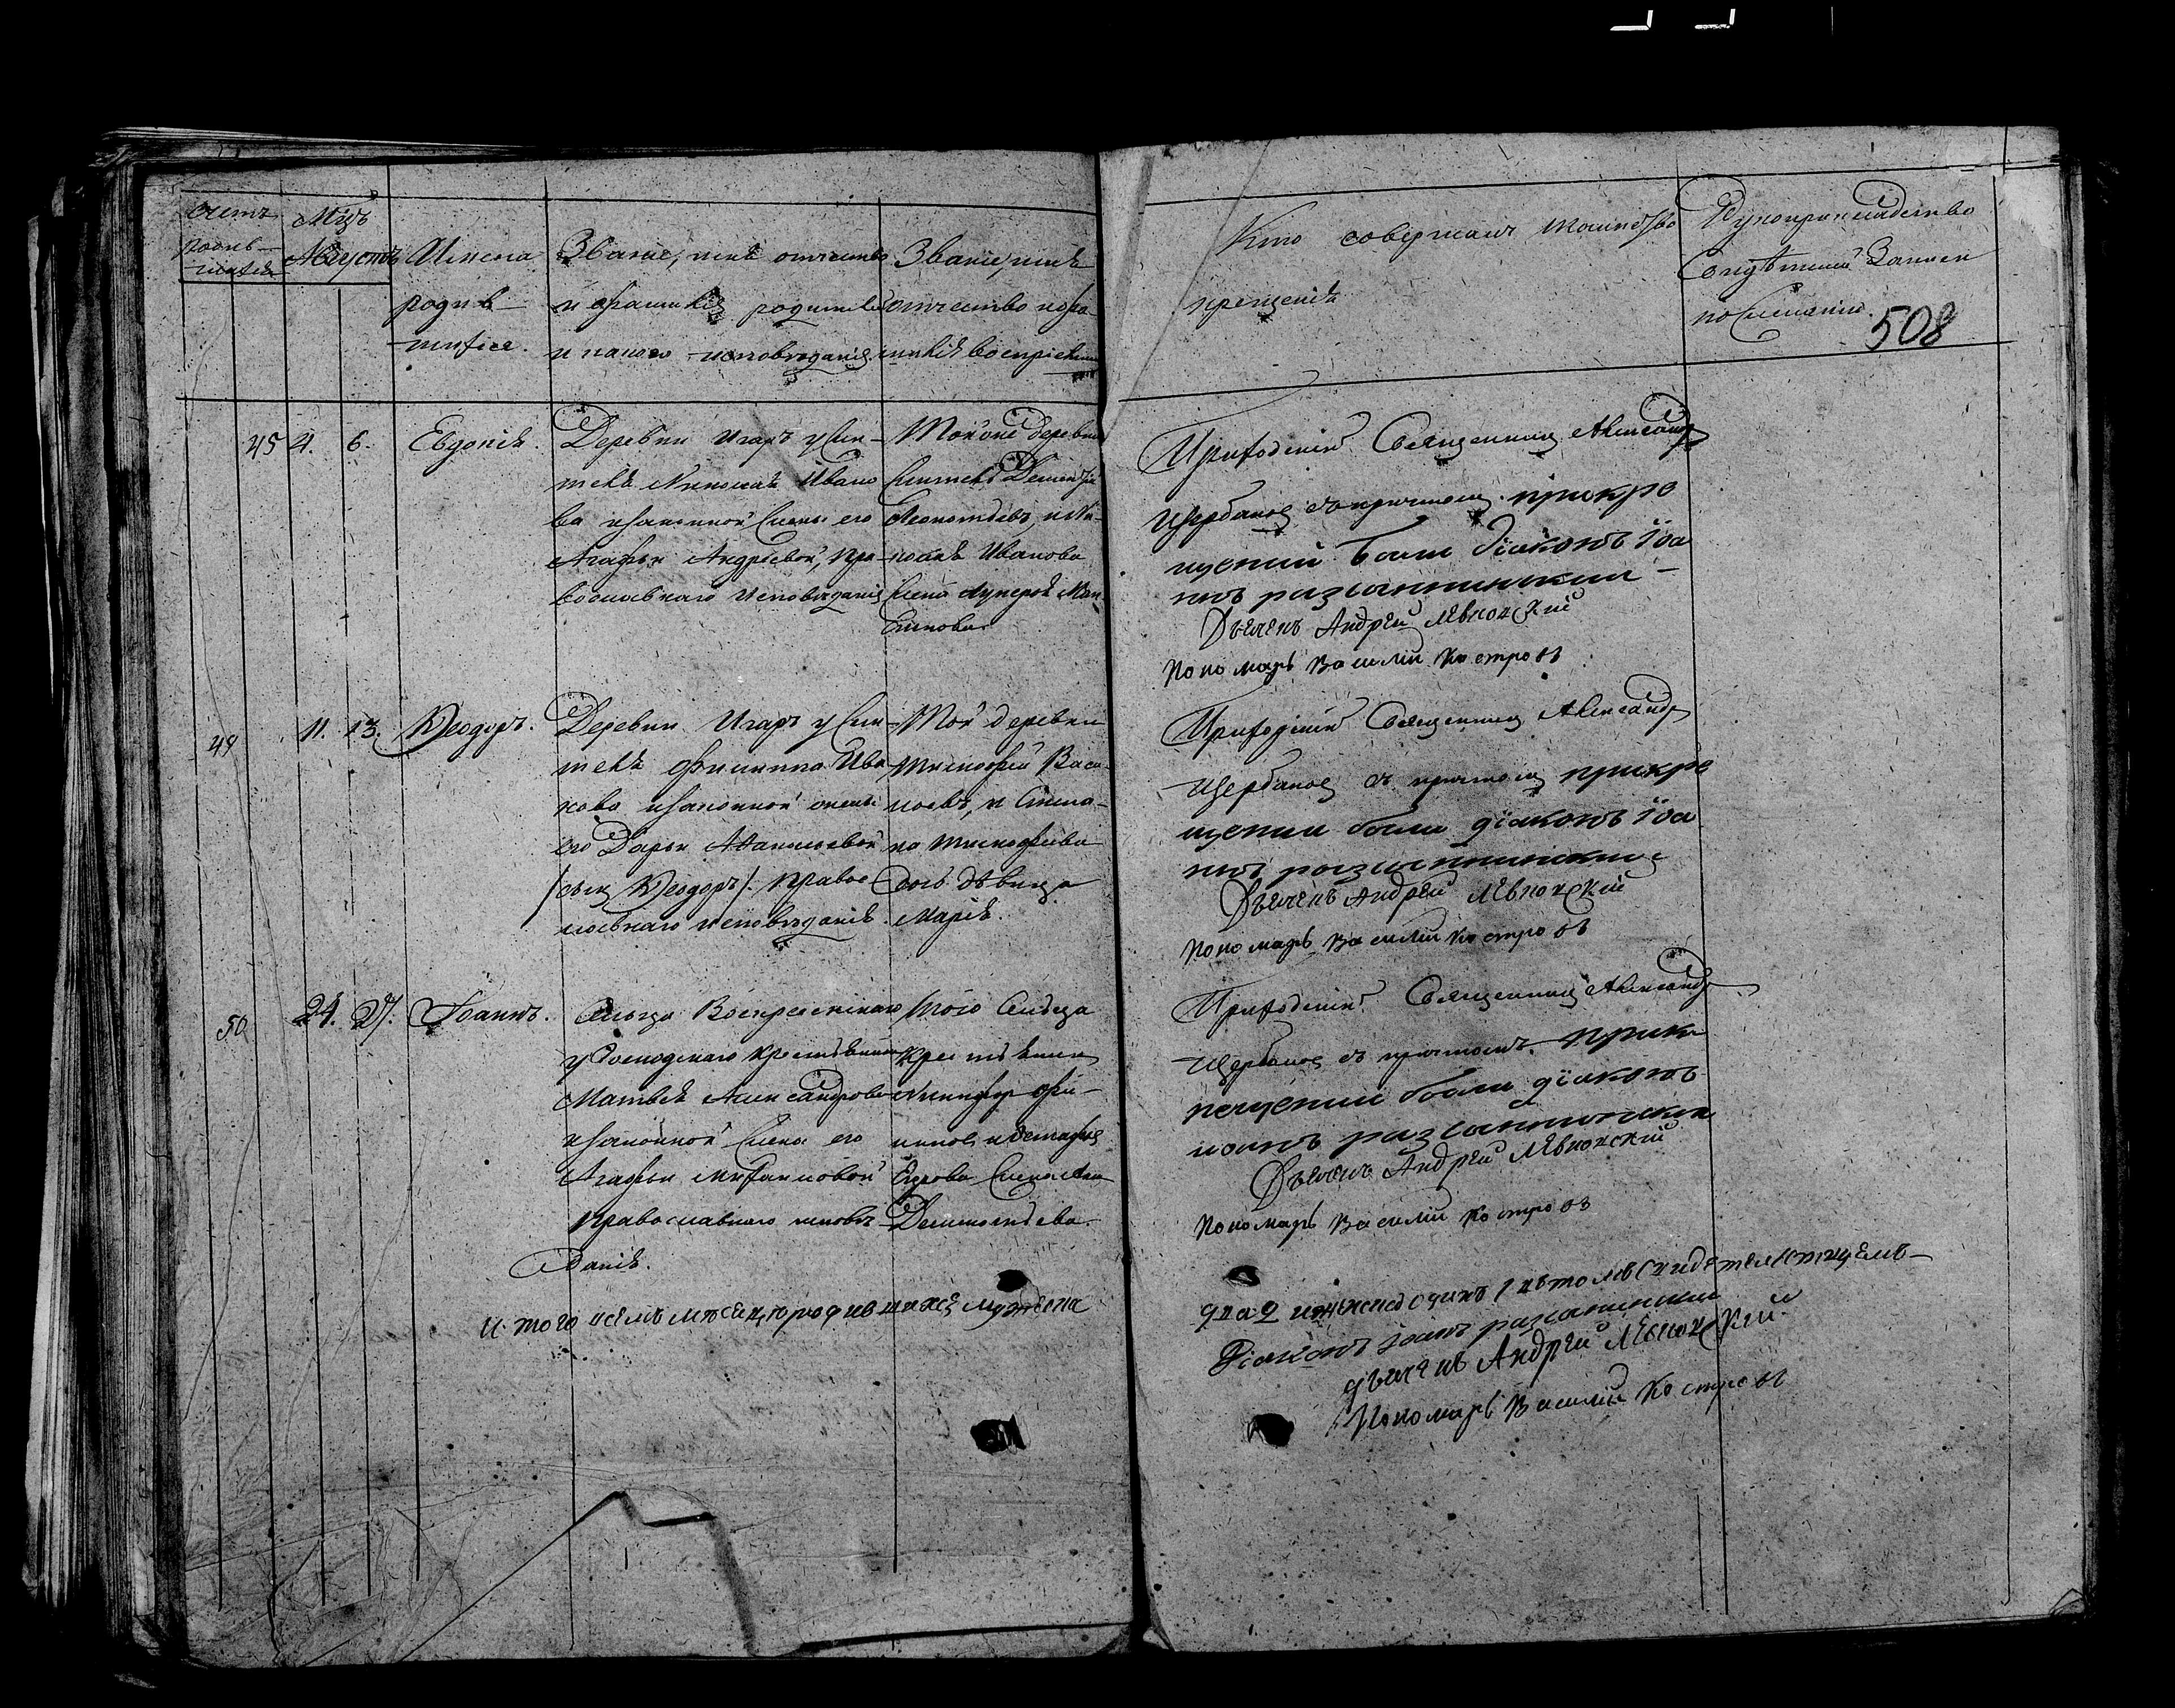 Счетъ
родив-
шихся
Мцъ
Августъ
Имена
родив-
шихся.
Званіе, имя отчество
и фамилія родителей
и какого исповѣданія.
Званіе, имя
отчество и фа-
милія воспріемни
Кто совершалъ таинство
крещенія
Рукоприкладство
Свидѣтелей записи
по желанію.
508
45 4. 6. Евдокія.
Деревни Игаръ у жи-
теля Ивано
ва и законной жены его
Агафьи Андреевой, пра-
вославнаго исповѣданія
Той же деревни
житель Дементій
Леонтьевъ, и Ни-
Иванова
жена Лукерья Мак-
симова
Приходскій Священникъ Александръ
Щербаковъ съ причтомъ. при кре
щеніи были діаконъ Іоа
ннъ
Дьячекъ Андрей Левкокскій
Пономарь Василій Костровъ
49 11. 13. Ѳеодоръ.
Деревни Игаръ у жи
теля Филиппа Ива
нова и законной жены
его Дарьи Аѳанасьевой
/сынъ Ѳеодоръ/. Право-
славнаго исповѣданія.
Той деревни
Тимофей Васи-
льевъ, и Степа-
на Тимофеева
дочь дѣвица
Марія.
Приходскій Священникъ Александръ
Щербаковъ съ причтомъ при кре
щеніи были діаконъ Іоа
ннъ
Дьячекъ Андрей Левкокскій
Пономарь Василій Костровъ
50 24. 27. Іоаннъ.
Сельца Воскресенскаго
у Господскаго крестьянина
Матвѣя Александрова
и законной жены его
Агафьи Михайловой
Православнаго исповѣ-
данія.
Того Сельца
крестьянинъ
Никифоръ Фи-
липовъ и
Егорова жена
Дементьева.
Приходскій Священникъ Александръ
Щербаковъ съ причтомъ. При к
рещеніи были діаконъ
Іоаннъ
Дьячекъ Андрей Левкокскій
Пономарь Василій Костровъ
Итого всемъ месяце родившихся мужеска
два 2 и женска одинъ 1 въ томъ свидетельствуемъ-
Діаконъ Іоаннъ
дьячекъ Андрей Левкокскій.
Пономарь Василій Костровъ